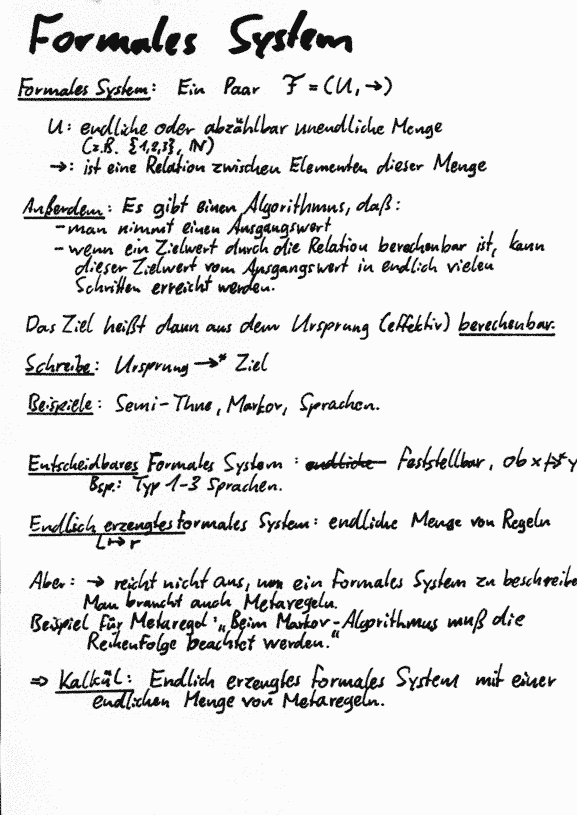 Formales System
Formales System: Ein Paar F = (U, →)
U: endliche oder abzählbar unendliche Menge
(z.B. {1,2,3}, ℕ)
→: ist eine Relation zwischen Elementen dieser Menge
Außerdem: Es gibt einen Algorithmus, daß:
- man nimmt einen Ausgangswert
- wenn ein Zielwert durch die Relation berechenbar ist, kann
dieser Zielwert vom Ausgangswert in endlich vielen
Schritten erreicht werden.
Das Ziel heißt dann aus dem Ursprung (effektiv) berechenbar.
Schreibe: Ursprung →* Ziel
Beispiele: Semi-Thue, Markov, Sprachen.
Entscheidbares Formales System: endliche Feststellbar, ob x ↛* y
Bsp.: Typ 1-3 Sprachen.
Endlich erzeugtes formales System: endliche Menge von Regeln
l ↦ r
Aber: → reicht nicht aus, um ein Formales System zu beschreibe
Man braucht auch Metaregeln.
Beispiel für Metaregel: „Beim Markov-Algorithmus muß die
Reihenfolge beachtet werden."
⇒ Kalkül: Endlich erzeugtes formales System mit einer
endlichen Menge von Metaregeln.